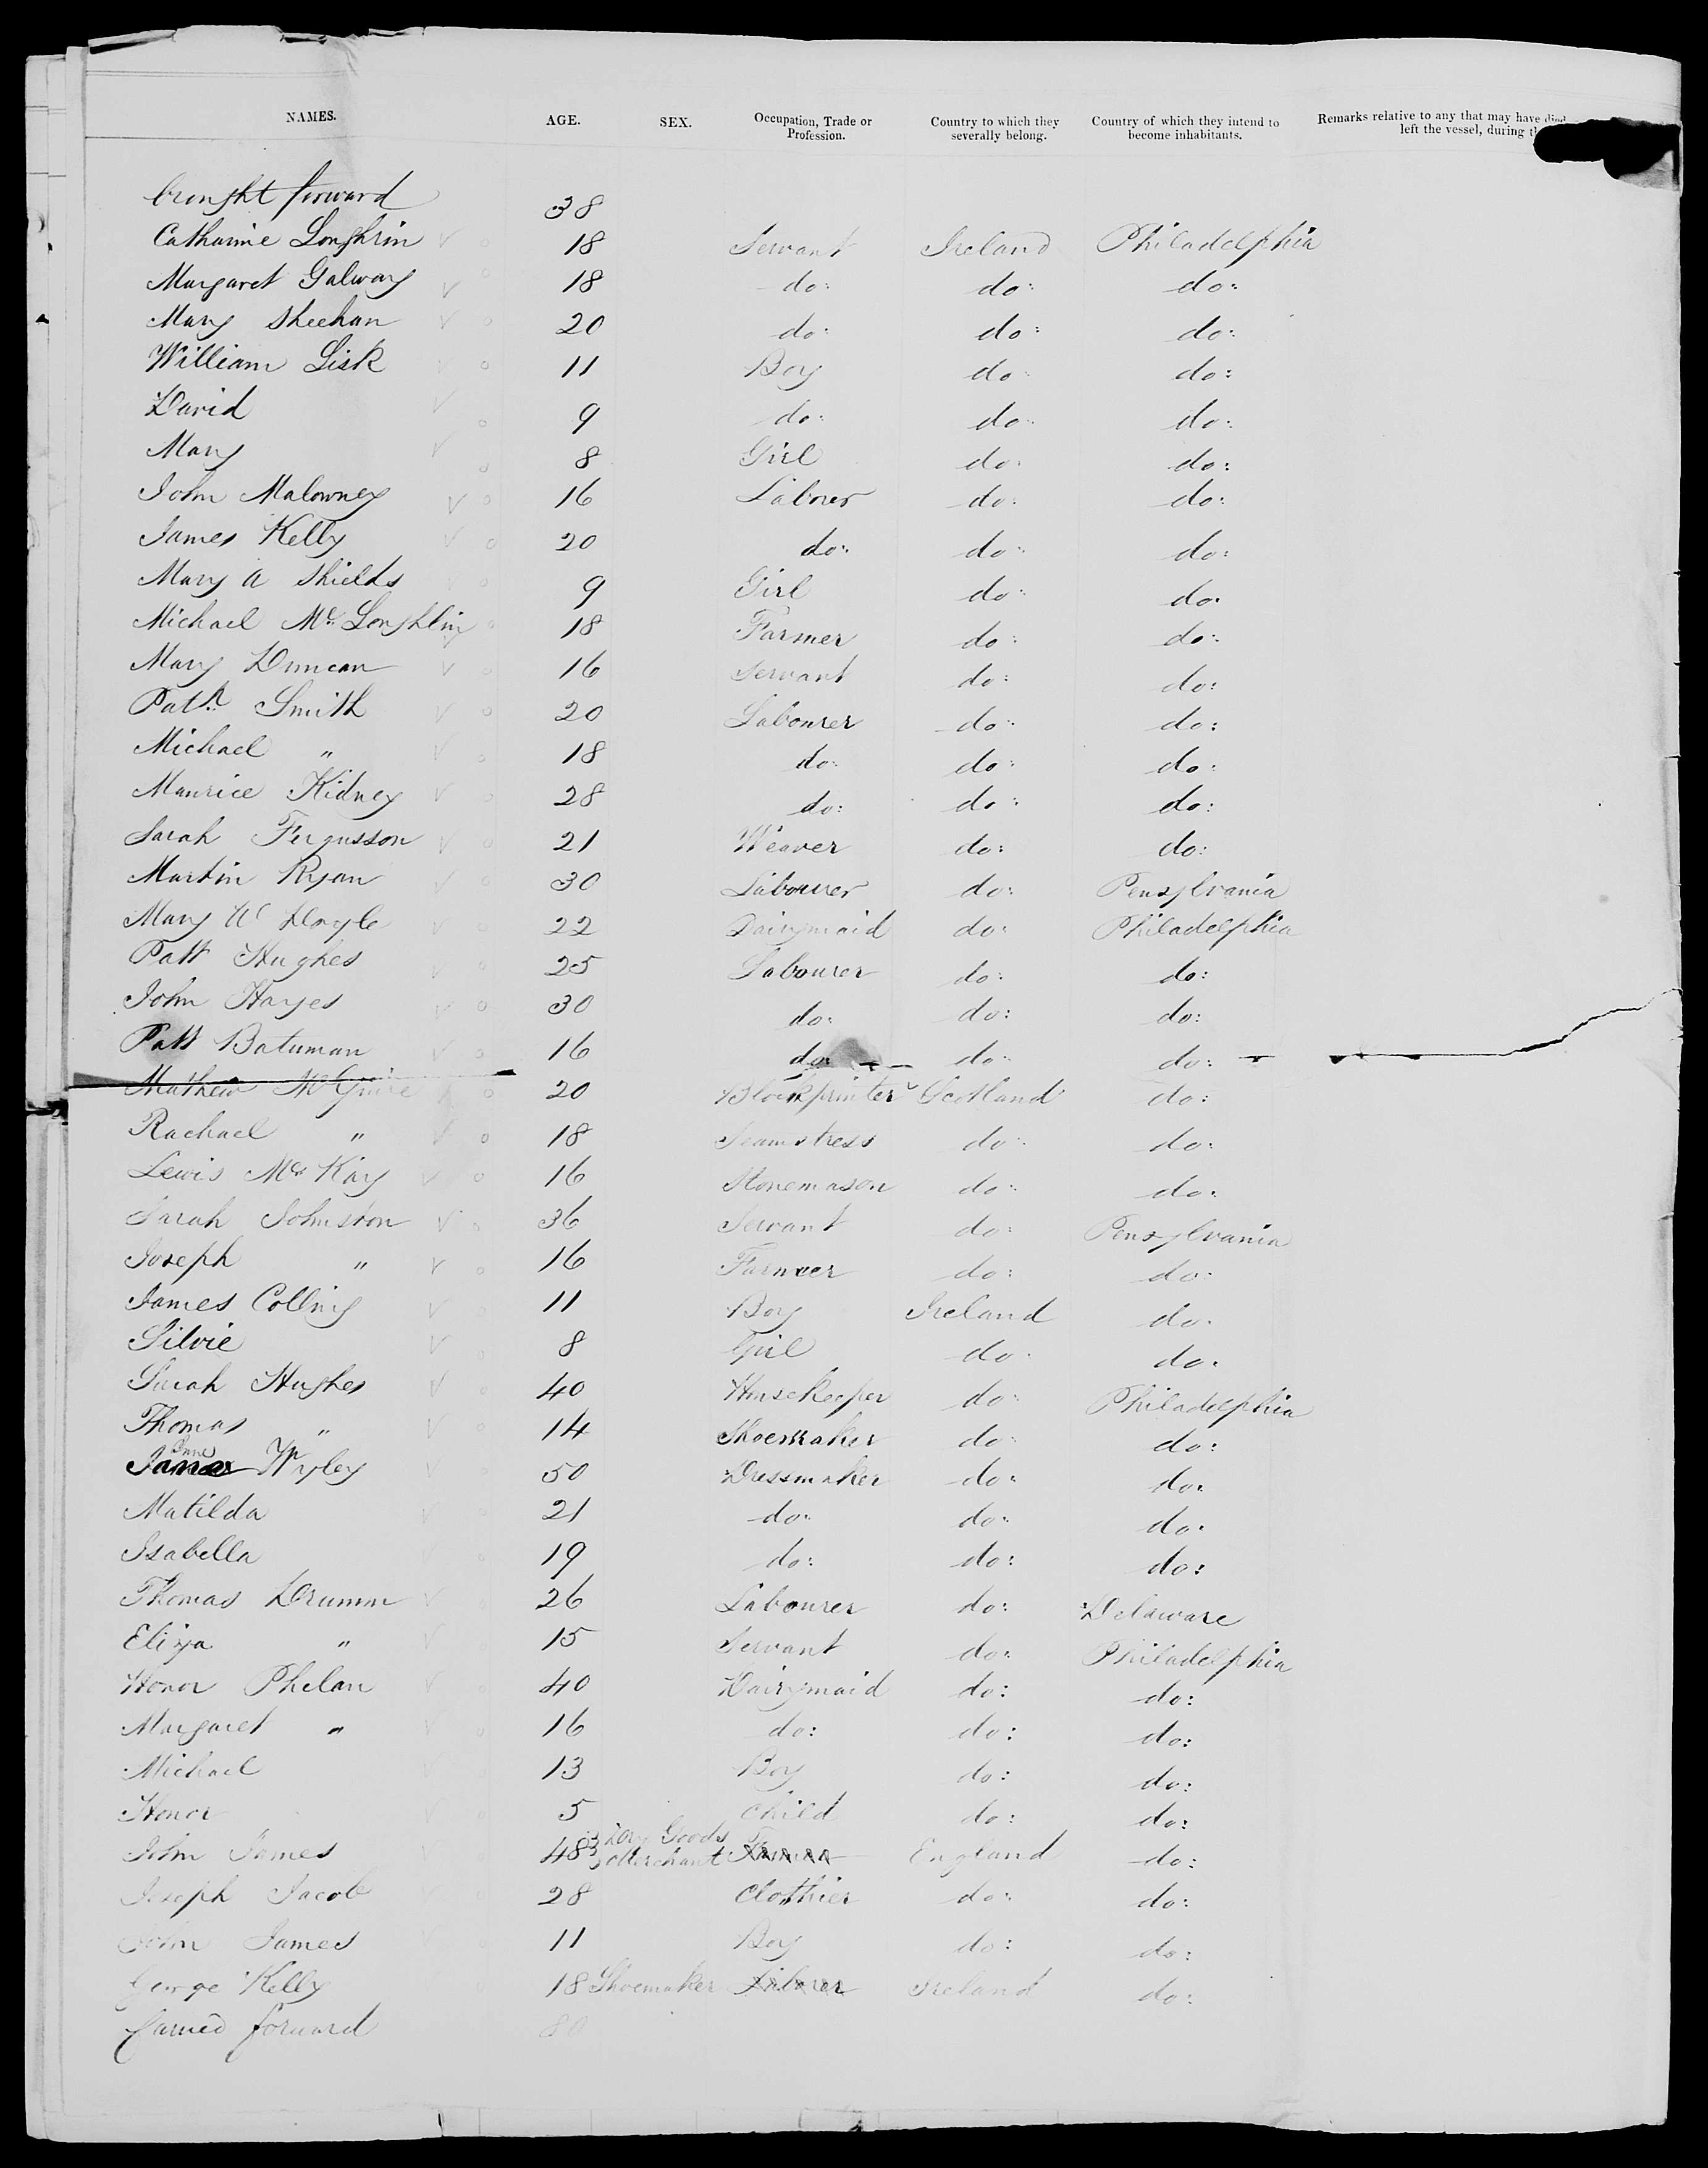 NAMES. AGE. SEX. Occupation, Trade or Profession. Country to which they severally belong. Country of which they intend to become inhabitants. Remarks relative to any that may have died left the vessel, during
brought forward 38
Catharine Loughrin 18 Servant Ireland Philadelphia
Margaret Galway 18 do: do: do:
Mary Sheehan 20 do: do: do:
William Lisk 11 Boy do: do:
David 9 do: do: do:
Mary 8 Girl do: do:
John Malowney 16 Labrer do: do:
James Kelly 20 do: do: do:
Mary A Shields 9 Girl do: do:
Michael Mc Loughlin 18 Farmer do: do:
Mary Duncan 16 Servant do: do:
Patk Smith 20 Labourer do: do:
Michael " 18 do: do: do:
Maurice Kidney 28 do: do: do:
Sarah Fergusson 21 Weaver do: do:
Martin Ryan 30 Labourer do: Pensylvania
Mary Doyle 22 Dairymaid do: Philadelphia
Patt Hughes 25 Labourer do: do:
John Hayes 30 do: do: do:
Patt Batuman 16 do: do: do:
Mathew McGuire 20 Blockprinter Scotland do:
Rachael " 18 Seamstress do: do:
Lewis Mc Kay 16 Stonemason do: do:
Sarah Johnston 36 Servant do: Pensylvania
Joseph " 16 Farmer do: do:
James Colling 11 Boy Ireland do:
Silvie 8 Girl do: do:
Sarah Hughes 40 Housekeeper do: Philadelphia
Thomas " 14 Shoemaker do: do:
Jane Wyley 50 Dressmaker do: do:
Matilda 21 do: do: do:
Isabella 19 do: do: do:
Thomas Drumm 26 Labourer do: Delaware
Eliza " 15 Servant do: Philadelphia
Honor Phelan 40 Dairymaid do: do:
Margaret " 16 do: do: do:
Michael 13 Boy do: do:
Honor 5 Child do: do:
John James 48 Dry Goods Merchant Farmer England do:
Joseph Jacob 28 Clothier do: do:
John James 11 Boy do: do:
George Kelly 18 Shoemaker Labrer Ireland do:
Carried forward 80